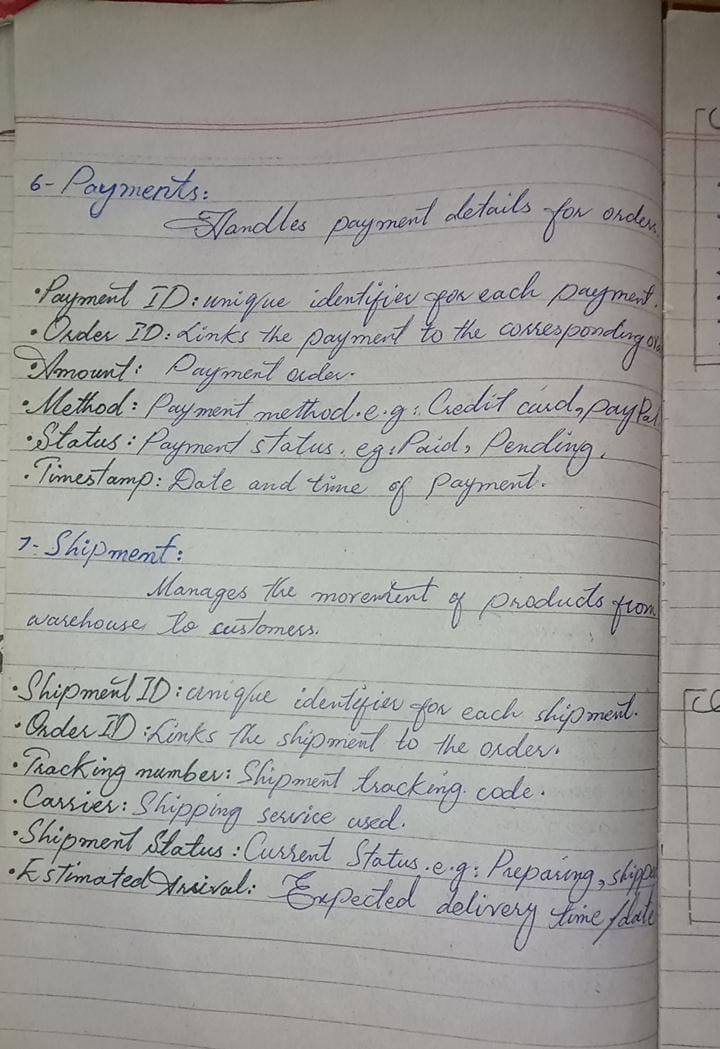 6- Payments:
Handles payment details for orders.
• Payment ID: unique identifier for each payment.
• Order ID: Links the payment to the corresponding
• Amount: Payment order.
• Method: Payment method. e.g: Credit card, PayPal
• Status: Payment status. eg: Paid, Pending.
• Timestamp: Date and time of payment.
7- Shipment:
Manages the movement of products from
warehouse to customers.
• Shipment ID: unique identifier for each shipment.
• Order ID: Links the shipment to the order.
• Tracking number: Shipment tracking code.
• Carrier: Shipping service used.
• Shipment Status: Current Status. e.g: Preparing, shippe
• Estimated Arrival: Expected delivery time/date